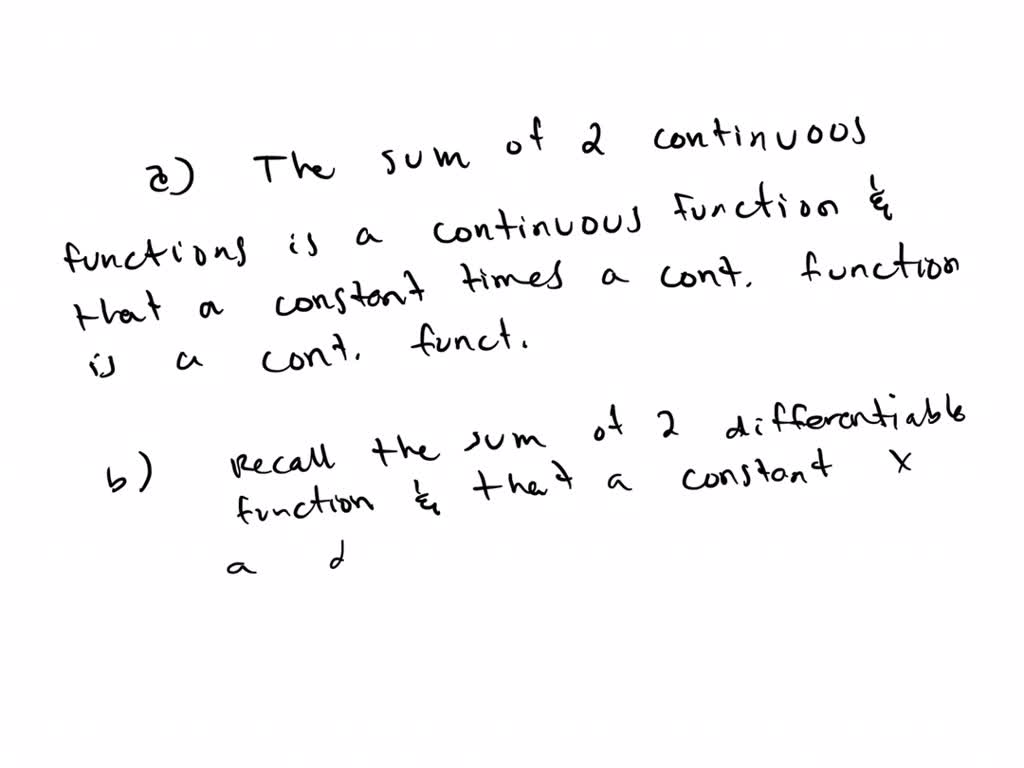 a) The sum of 2 continuous
functions is a continuous function &
that a constant times a cont. function
is a cont. funct.
b) Recall the sum of 2 differentiable
function & that a constant x
a d